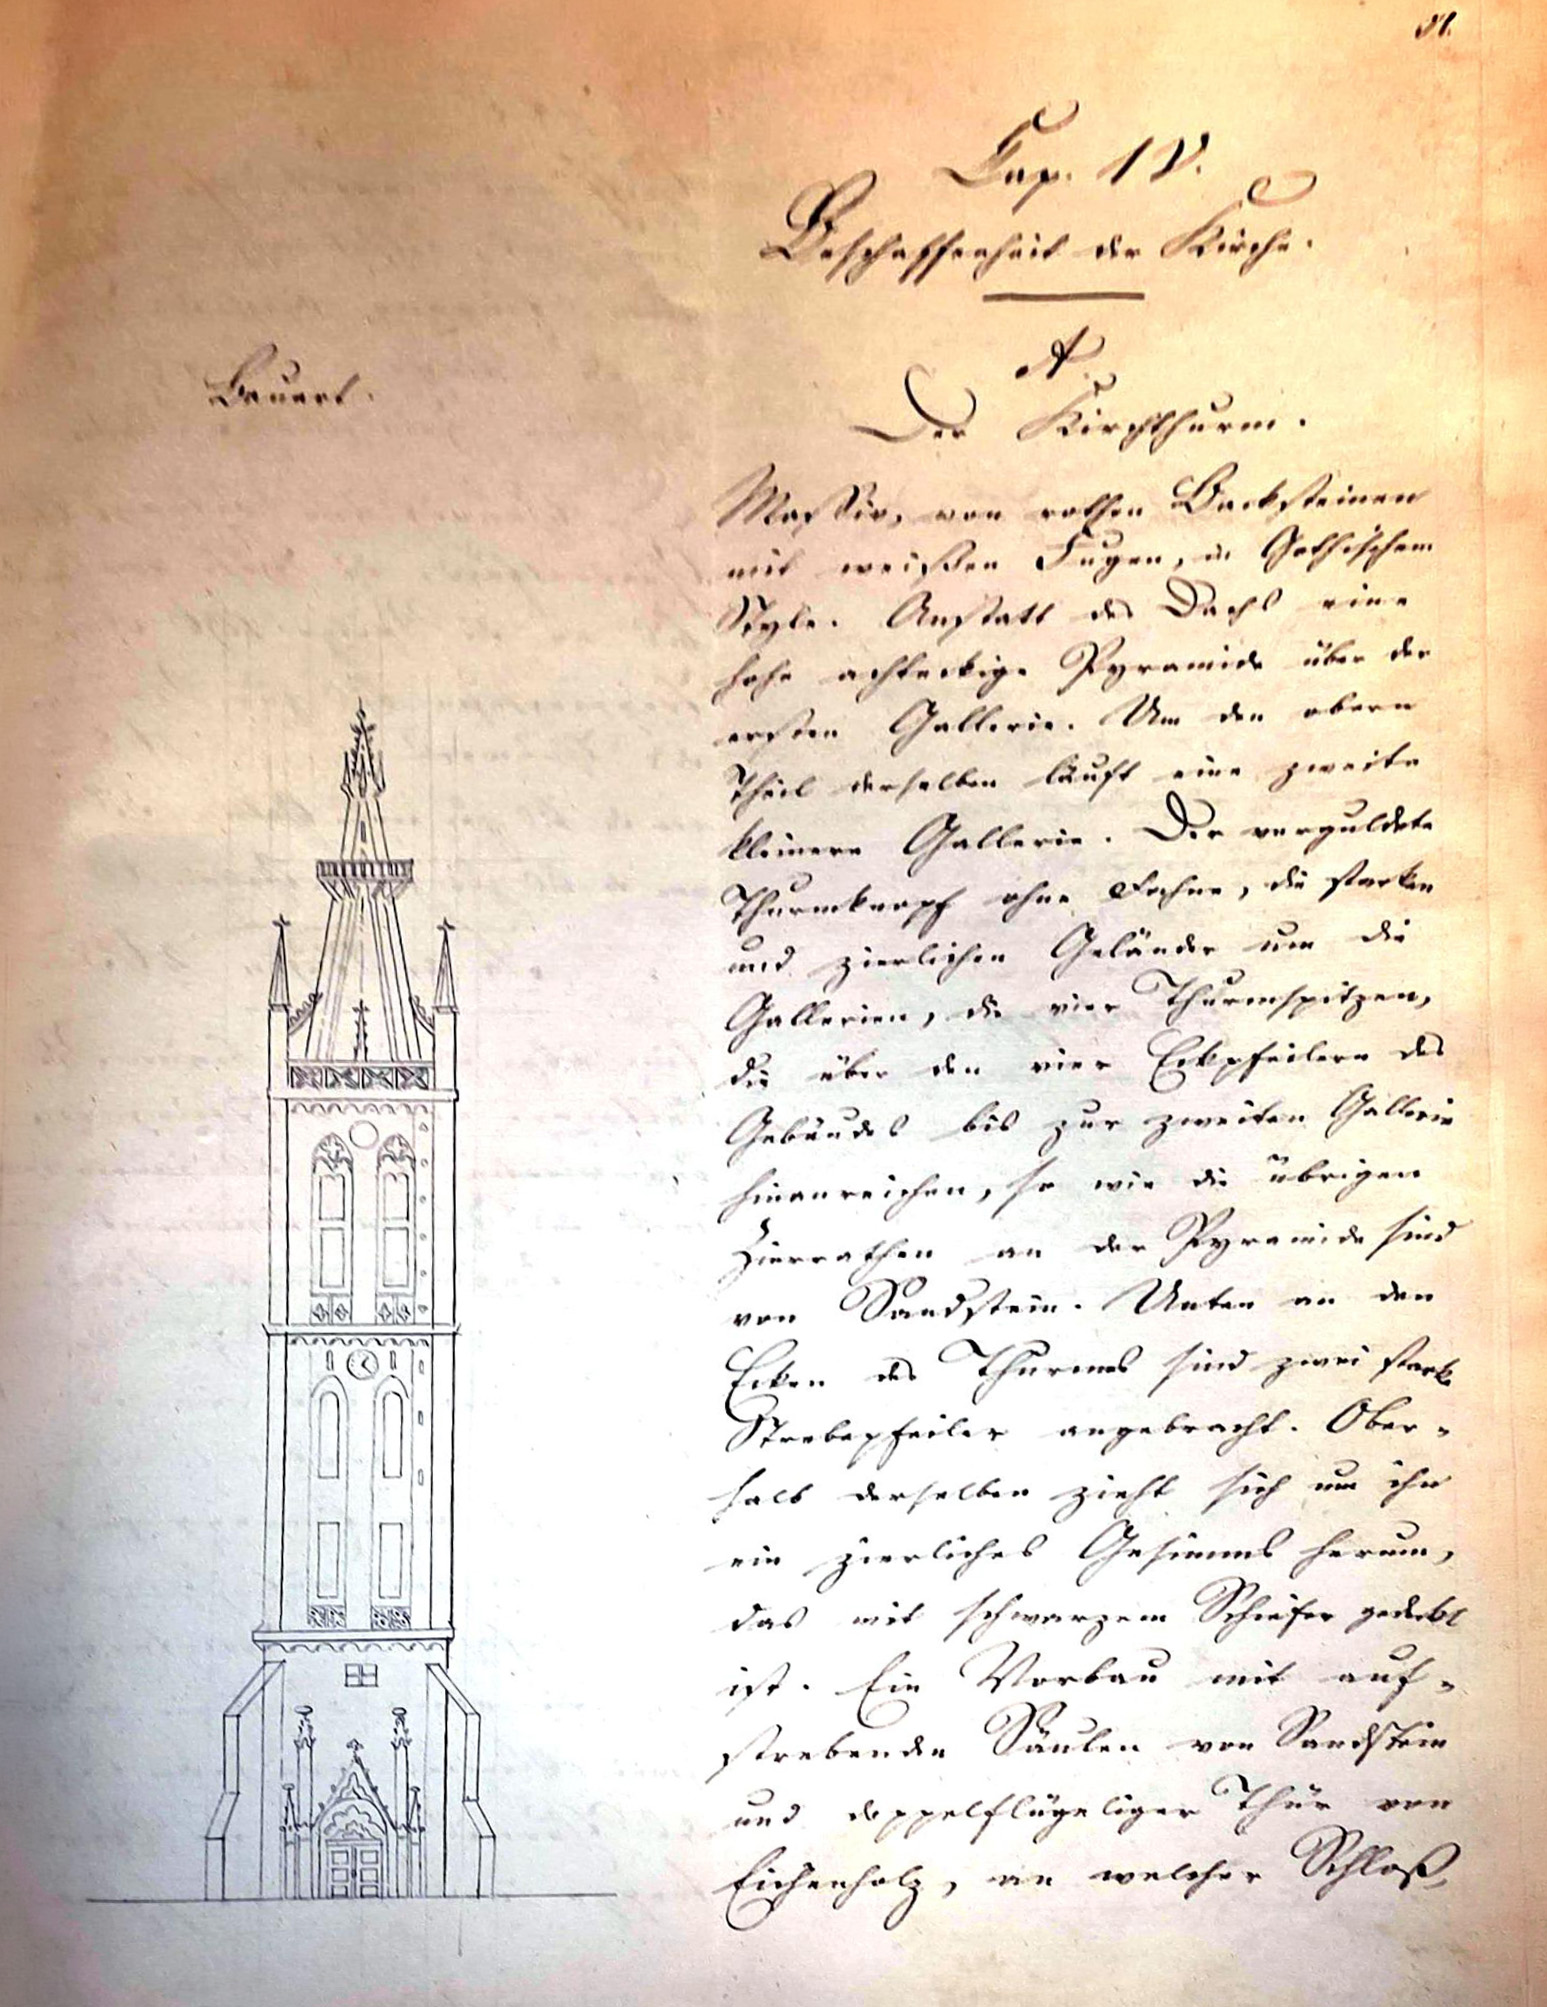 51.
Cap. IV.
Beschaffenheit der Kirche.
A.
Bauart.
Der Kirchthurm.
Massiv, von rothen Backsteinen
mit weißen Fugen, in Gothischem
Style. Anstatt des Dachs eine
hohe achteckige Pyramide über der
ersten Gallerie. Um den obern
Theil derselben läuft eine zweite
kleinere Gallerie. Der verguldete
Thurmknopf ohne Fahne, die starken
und zierlichen Geländer um die
Gallerien, die vier Thurmspitzen,
die über den vier Eckpfeilern des
Gebäudes bis zur zweiten Gallerie
hinanreichen, so wie die übrigen
Zierrathen an der Pyramide sind
von Sandstein. Unten an den
Ecken des Thurmes sind zwei starke
Strebepfeiler angebracht. Ober-
halb derselben zieht sich um ihn
ein zierliches Gesimms herum,
das mit schwarzem Schiefer gedeckt
ist. Ein Vorbau mit auf-
strebenden Säulen von Sandstein
und doppelflügeliger Thür von
Eichenholz, an welcher Schloß,